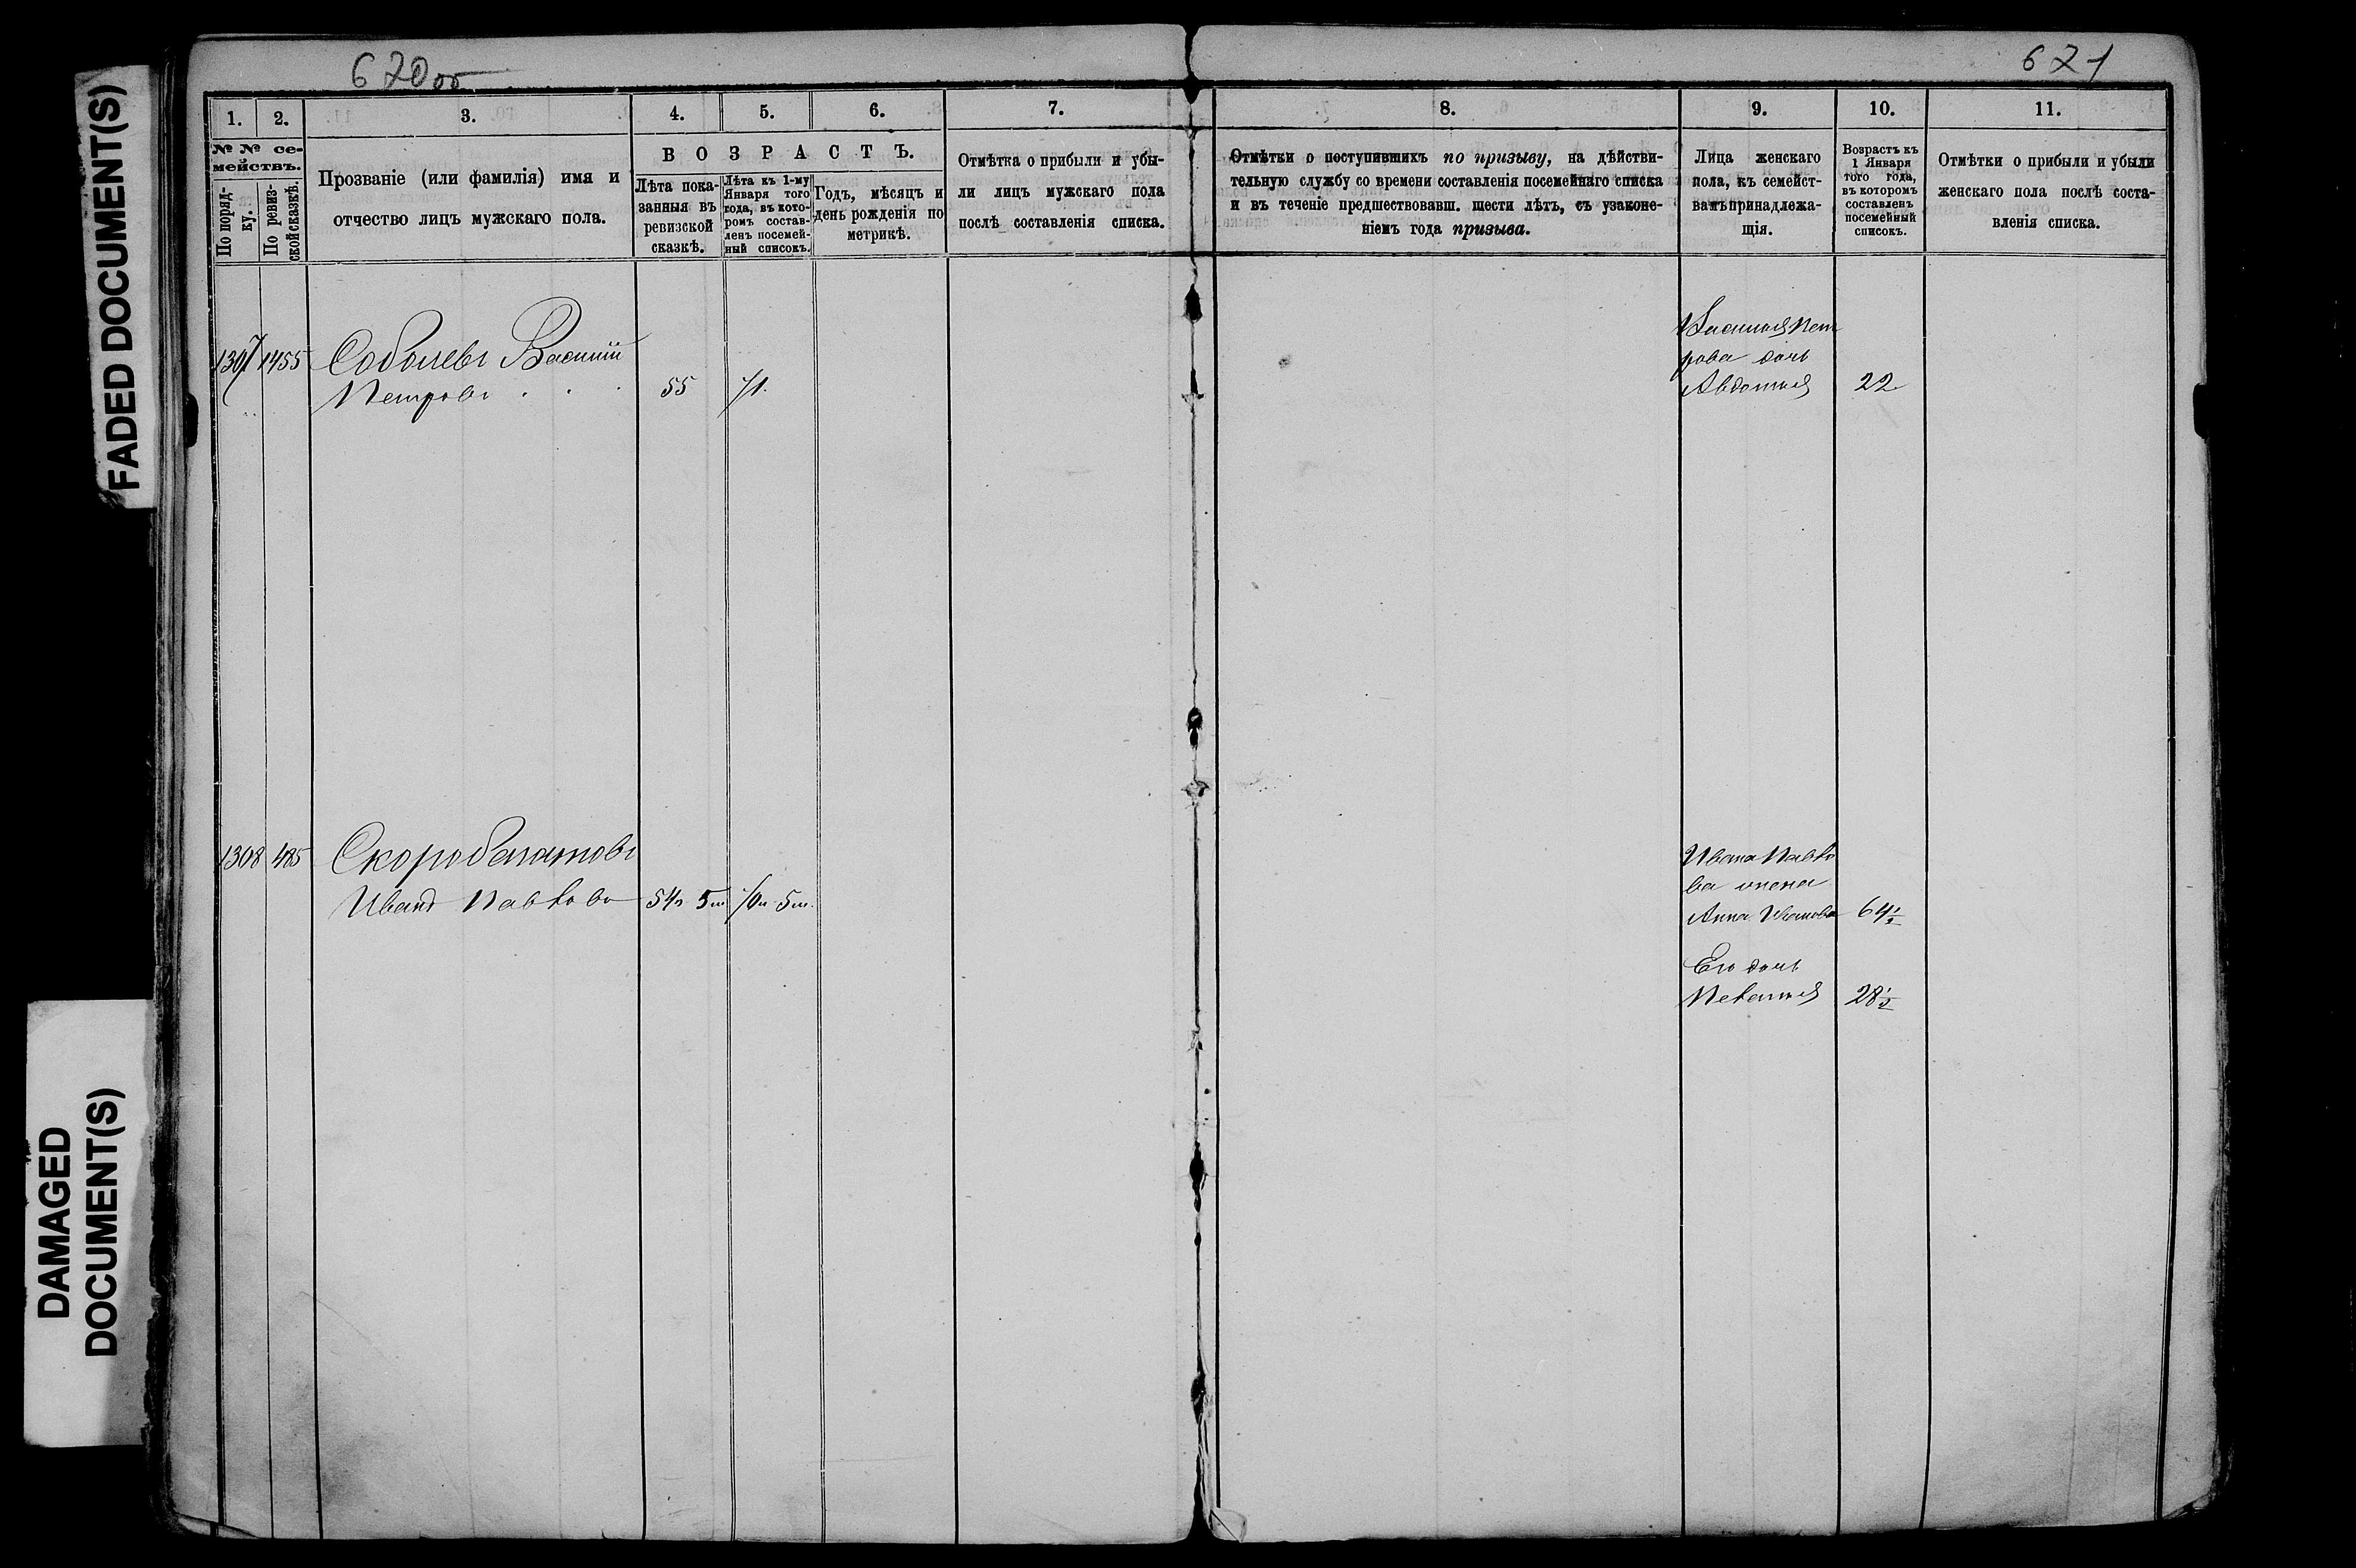 FADED DOCUMENT(S)
DAMAGED
DOCUMENT(S)
620об
621
1. 2. 3. 4. 5. 6. 7. 8. 9. 10. 11.
№ № се-
мействъ.
По поряд-
ку.
По ревиз-
ской сказкѣ.
Прозваніе (или фамилія) имя и
отчество лицъ мужскаго пола.
ВОЗРАСТЪ.
Лѣта пока-
занныя въ
ревизской
сказкѣ.
Лѣта къ 1-му
Января того
года, въ кото-
ромъ состав-
ленъ посемей-
ный списокъ.
Годъ, мѣсяцъ и
день рожденія по
метрикѣ.
Отмѣтка о прибыли и убы-
ли лицъ мужскаго пола
послѣ составленія списка.
Отмѣтки о поступившихъ по призыву, на дѣйстви-
тельную службу со времени составленія посемейнаго списка
и въ теченіе предшествовавш. шести лѣтъ, съ узаконе-
ніемъ года призыва.
Лица женскаго
пола, къ семейст-
вамъ принадлежа-
щія.
Возрастъ къ
1 Января
того года,
въ которомъ
составленъ
посемейный
списокъ.
Отмѣтки о прибыли и убыли
женскаго пола послѣ соста-
вленія списка.
1307 1455 Соболевъ Василій
Петровъ . . . 55 71.
Василія Пет
рова дочь
Авдотья 22
1308 485 Скоробогатовъ
Иванъ Павлово 54г 5м 70л 5м.
Ивана Павло
ва жена
Анна Иванова 64½
Его дочь
Пелагья 28½